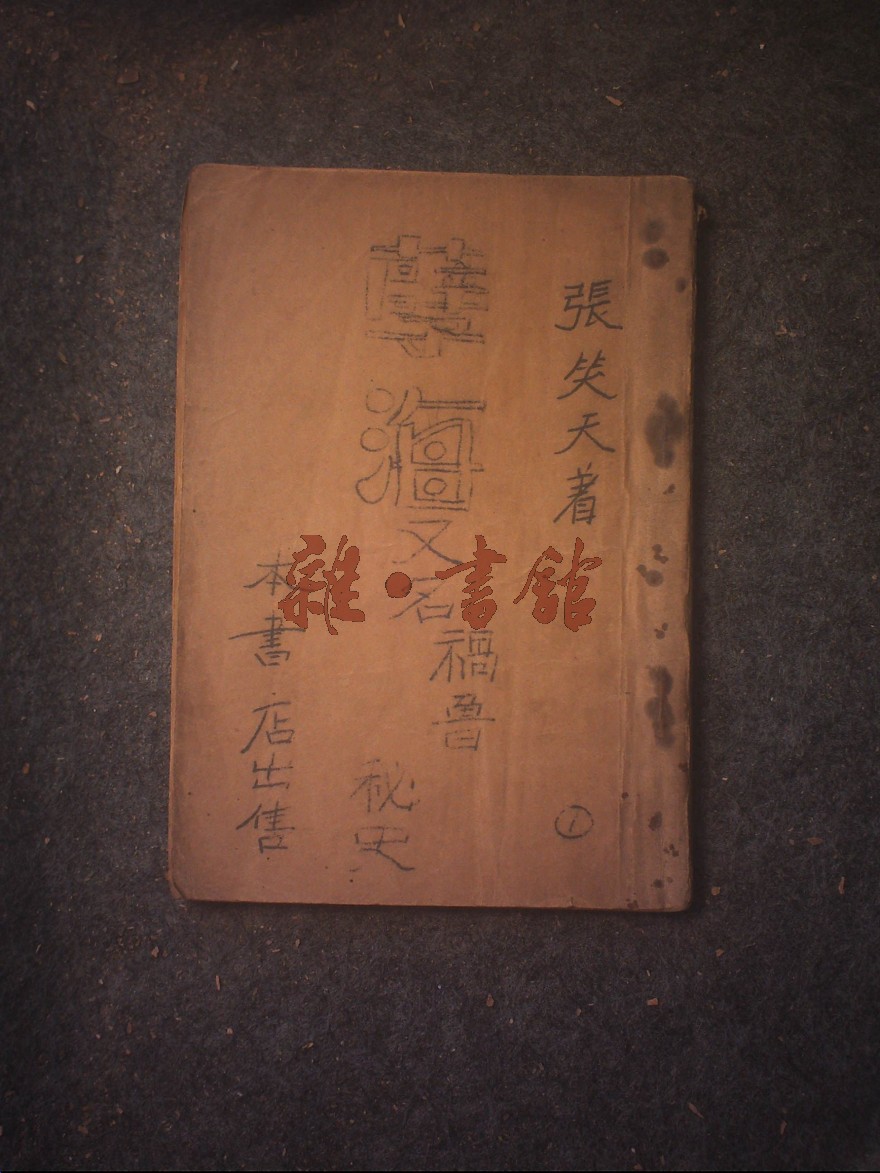 張笑天着
①
孽海
又名
禍魯
秘史
本書店出售
雜·書館